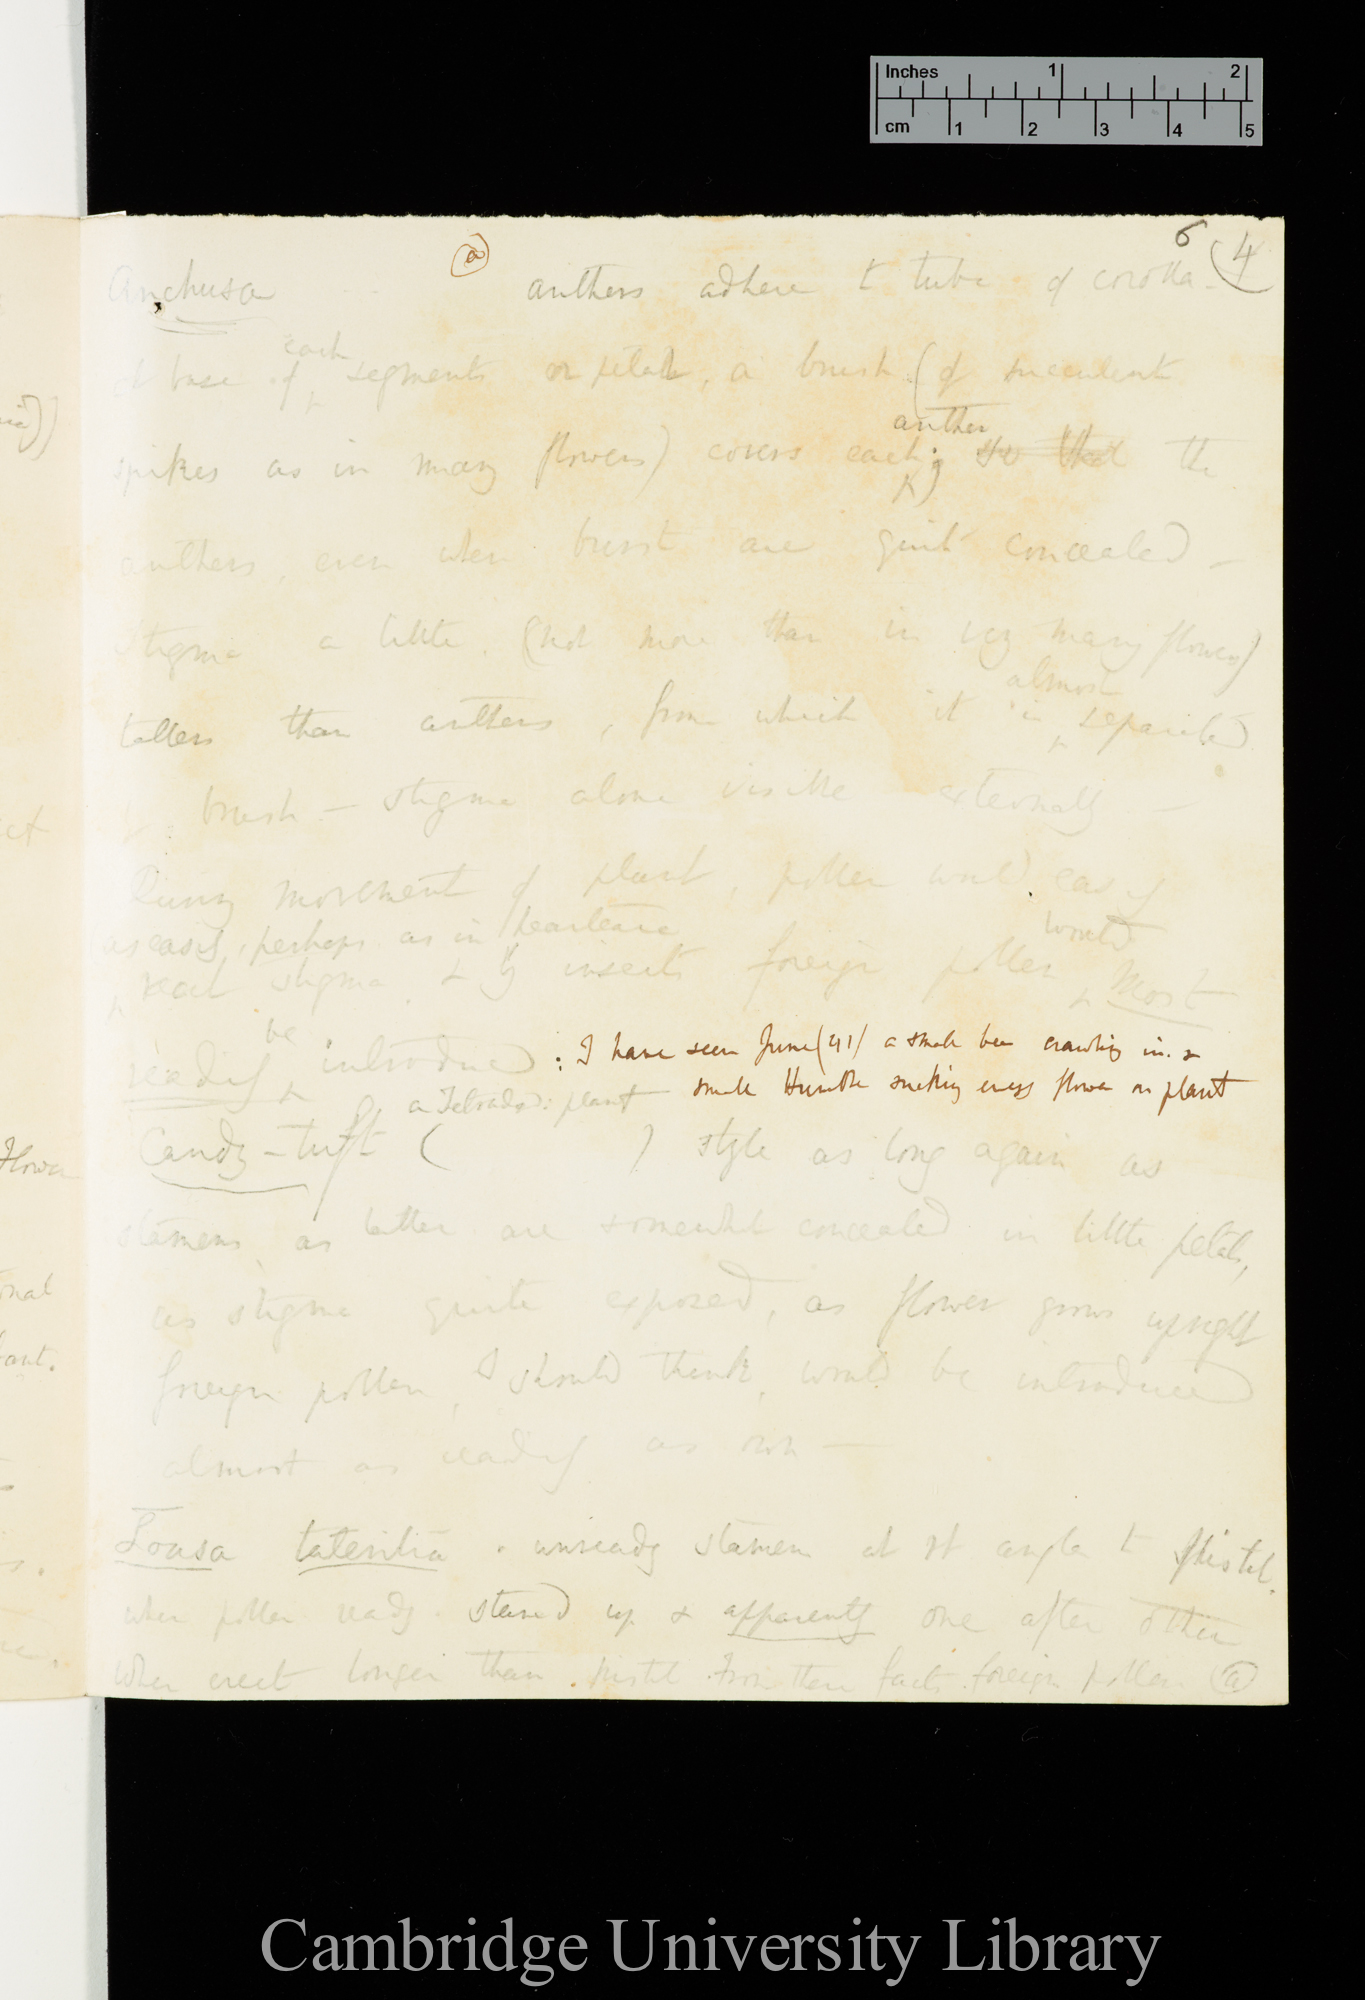 Inches 1 2
cm 1 2 3 4 5
6 (4
(a)
Anchusa anthers adhere to tube of corolla –
At base of each segments or petals, a brush (of succulent
spikes as in many flowers) covers each anther; so that the
anthers, even when burst are quite concealed –
Stigma a little (not more than in very many flowers)
tallers than anthers, from which it is almost separated
by brush – stigma alone visible externally –
During movement of plant, pollen would easily
as easily, perhaps as in heartease
reach stigma & by insects foreign pollen would most
readily be introduced : I have seen June (41) a small bee crawling in. &
small Humble sucking every flower on plant
a Tetradyn: plant
Candy-tuft ( ) style as long again as
stamens, as latter are somewhat concealed in little petals,
as stigma quite exposed, as flower grows upright
foreign pollen, I should think, would be introduced
almost as readily as own –
Loasa lateritia . unready stamen at rt angle to pistil.
when pollen ready stand up & apparently one after other
when erect longer than pistil. From these facts foreign pollen (a)
ct
Flower
onal
Cambridge University Library